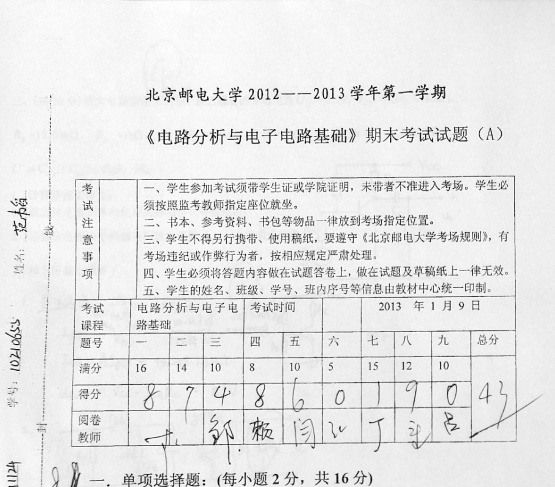 北京邮电大学 2012——2013 学年第一学期
《电路分析与电子电路基础》期末考试试题（A）
考试注意事项
一、学生参加考试须带学生证或学院证明，未带者不准进入考场。学生必
须按照监考教师指定座位就坐。
二、书本、参考资料、书包等物品一律放到考场指定位置。
三、学生不得另行携带、使用稿纸，要遵守《北京邮电大学考场规则》，有
考场违纪或作弊行为者，按相应规定严肃处理。
四、学生必须将答题内容做在试题答卷上，做在试题及草稿纸上一律无效。
五、学生的姓名、班级、学号、班内序号等信息由教材中心统一印制。
考试课程 电路分析与电子电路基础 考试时间 2013 年 1 月 9 日
题号 一 二 三 四 五 六 七 八 九 总分
满分 16 14 10 8 10 5 15 12 10
得分 8 7 4 8 6 0 1 9 0 43
阅卷教师 邹 赖 闫 丁 吕
一．单项选择题：(每小题 2 分，共 16 分)
姓名：
学号：
线
封